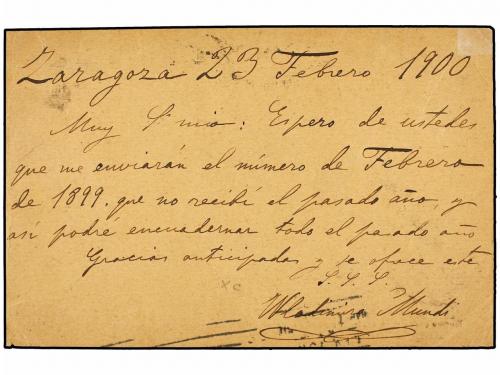 Zaragoza 23 Febrero 1900
Muy Sr mio: Espero de ustedes
que me enviarán el número de Febrero
de 1899. que no recibí el pasado año, y
así podré encuadernar todo el pasado año
Gracias anticipadas y se ofrece este
S. S. S.
Wladimiro Mundi